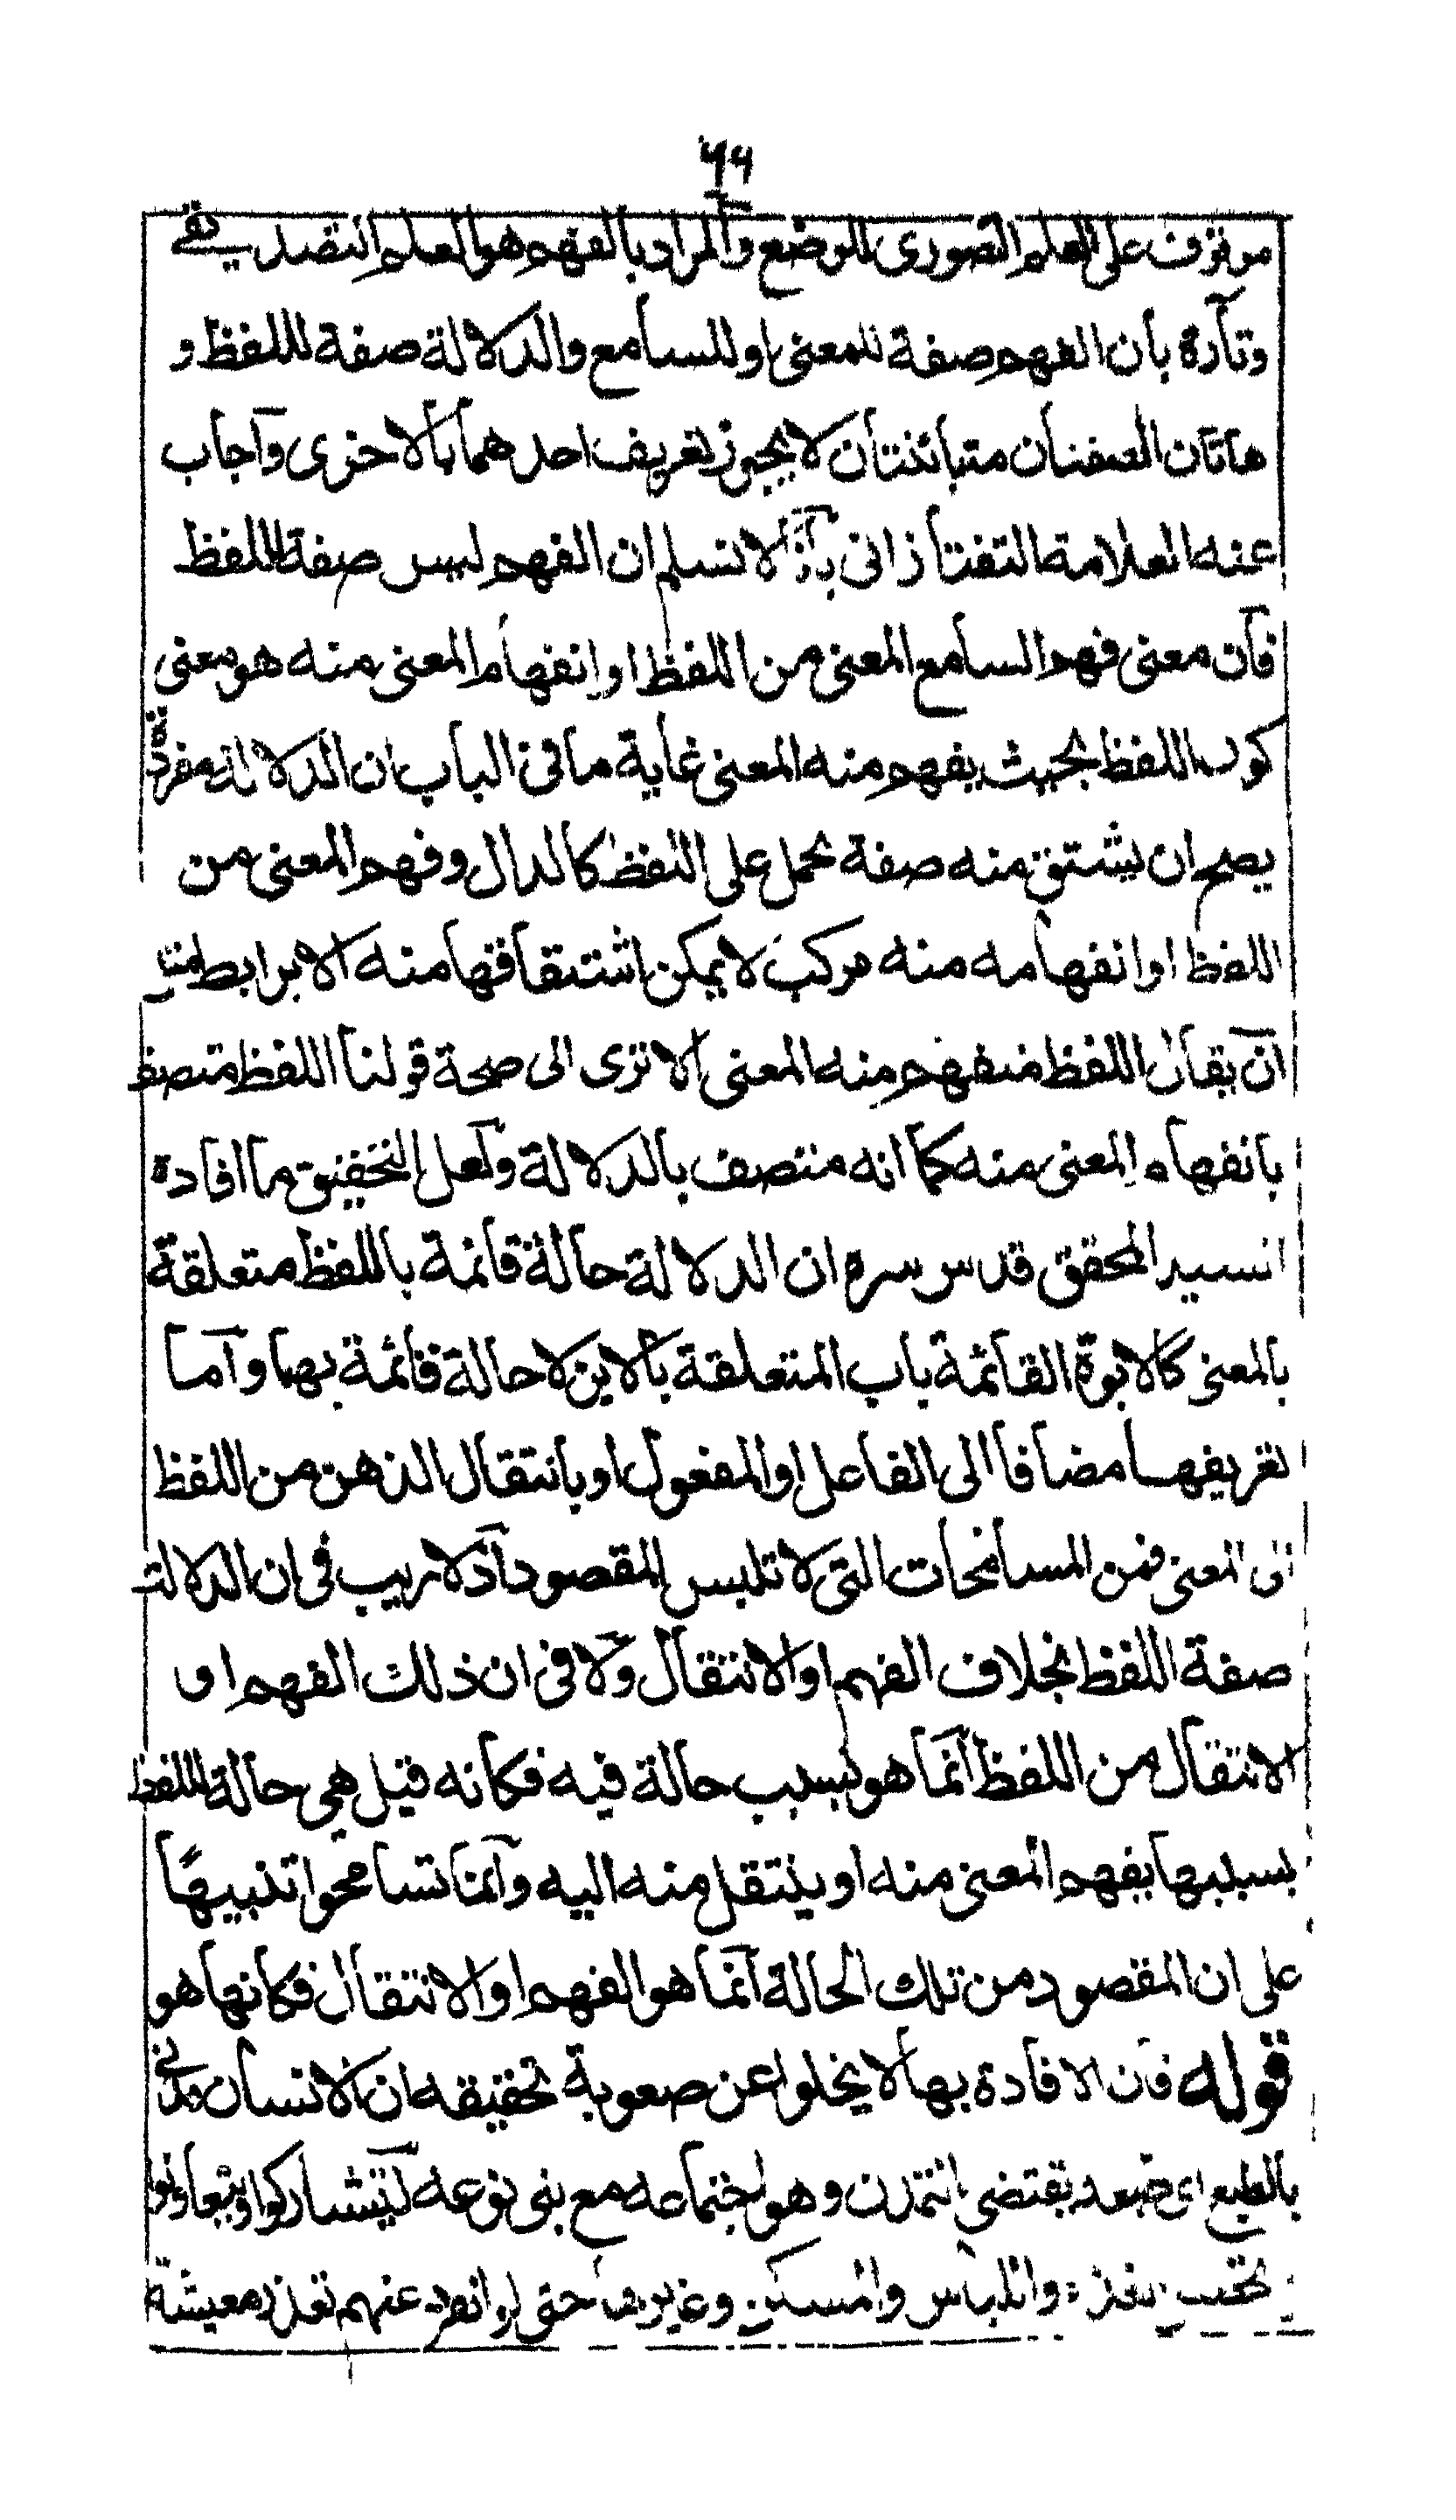 ٦٩
موقوف على العلم التصورى للوضع والمراد بالفهم هو العلم التصديقے
وتآرة بان الفهم صفة للمعنى او للسامع والدلالة صفة لللفظ و
هاتان الصفتان متبائنتان لا يجوز تعريف احدهما بالاخرى وآجاب
عنه العلامة التفتازانى بآنا لا نسلم ان الفهم ليس صفة اللفظ
فآن معنى فهم السامع المعنى من اللفظ او انفهام المعنى منه هو معنى
كون اللفظ بحيث يفهم منه المعنى غاية ما فى الباب ان الدلالة مفردة
يصح ان يشتق منه صفة تحمل على اللفظ كالدال وفهم المعنى من
اللفظ او انفهامه منه مركب لا يمكن اشتقاقها منه الا برابط مثل
آن يقال اللفظ منفهم منه المعنى آلا ترى الى صحة قولنا اللفظ متصف
بانفهام المعنى منه كما انه متصف بالدلالة ولعل التحقيق ما افادة
السيد المحقق قدس سره ان الدلالة حالة قائمة باللفظ متعلقة
بالمعنى كالابوة القائمة باب المتعلقة بالابن لا حالة قائمة بهما وآما
تعريفها مضافا الى الفاعل او المفعول او بانتقال الذهن من اللفظ
الى المعنى فمن المسامحات التى لا تلبس المقصود آذ لا ريب فى ان الدلالة
صفة اللفظ بخلاف الفهم او الانتقال وآلا فى ان ذلك الفهم او
الانتقال من اللفظ آنما هو بسبب حالة فيه فكانه قيل هى حالة اللفظ
بسببها يفهم المعنى منه او ينتقل منه اليه وآنما تسامحوا تنبيهًا
على ان المقصود من تلك الحالة آنما هو الفهم او الانتقال فكانها هو
قوله فان الافادة بها لا يخلوا عن صعوبة تحقيقه ان الانسان مدنى
بالطبع اى طبعه يقتضى التمدن وهو اجتماعه مع بنى نوعه ليتشاركوا ويتعاونوا
تحصيل الغذاء واللباس والمسكن وغيرها حتى لو انفرد عنهم تعذر معيشة